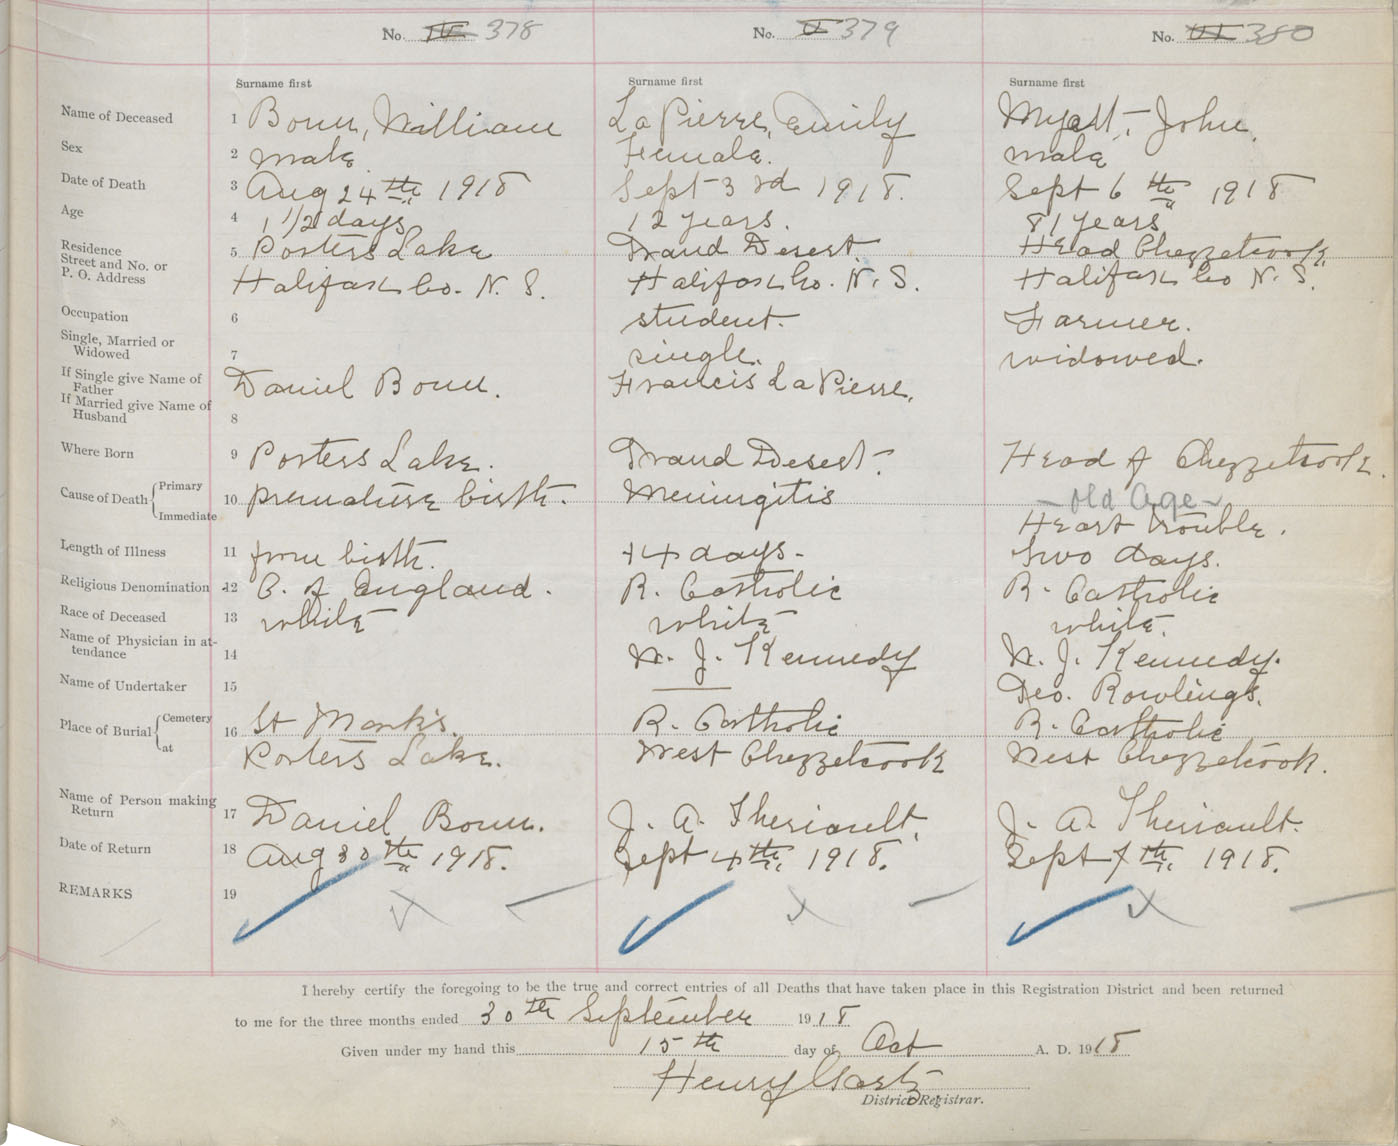 No. 378 No. 379 No. 380
Surname first Surname first Surname first
Name of Deceased 1 Bonn, William La Pierre, Emily Myatt, John.
Sex 2 male Female. male
Date of Death 3 Aug 24th 1918 Sept 3rd 1918. Sept 6th 1918
Age 4 1 1/2 days 12 years. 81 years
Residence Street and No. or P. O. Address 5 Porters Lake Grand Desert Head Chezzetcook
Halifax Co. N. S. Halifax Co. N. S. Halifax Co N. S.
Occupation 6 student. Farmer.
Single, Married or Widowed 7 single. widowed.
If Single give Name of Father Daniel Bonn. Francis La Pierre.
If Married give Name of Husband 8
Where Born 9 Porters Lake. Grand Desert. Head of Chezzetcook.
Cause of Death Primary 10 premature birth. Meningitis old Age
Immediate Heart trouble.
Length of Illness 11 from birth. 14 days - two days.
Religious Denomination 12 C. of England. R. Catholic R. Catholic
Race of Deceased 13 white white white.
Name of Physician in attendance 14 N. J. Kennedy N. J. Kennedy.
Name of Undertaker 15 Geo. Rowlings.
Place of Burial Cemetery 16 St Mark's. R. Catholic R. Catholic
at Porters Lake. West Chezzetcook West Chezzetcook.
Name of Person making Return 17 Daniel Bonn. J. A. Theriault. J. A. Theriault.
Date of Return 18 Aug 30th 1918. Sept 4th 1918. Sept 7th 1918.
REMARKS 19
I hereby certify the foregoing to be the true and correct entries of all Deaths that have taken place in this Registration District and been returned
to me for the three months ended 30th September 1918
Given under my hand this 15th day of Oct A. D. 1918
Henry Gaetz
District Registrar.